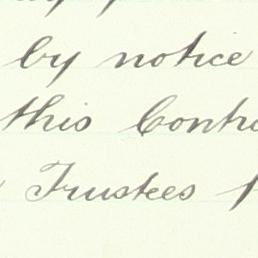 by notice
this Contra
Trustees